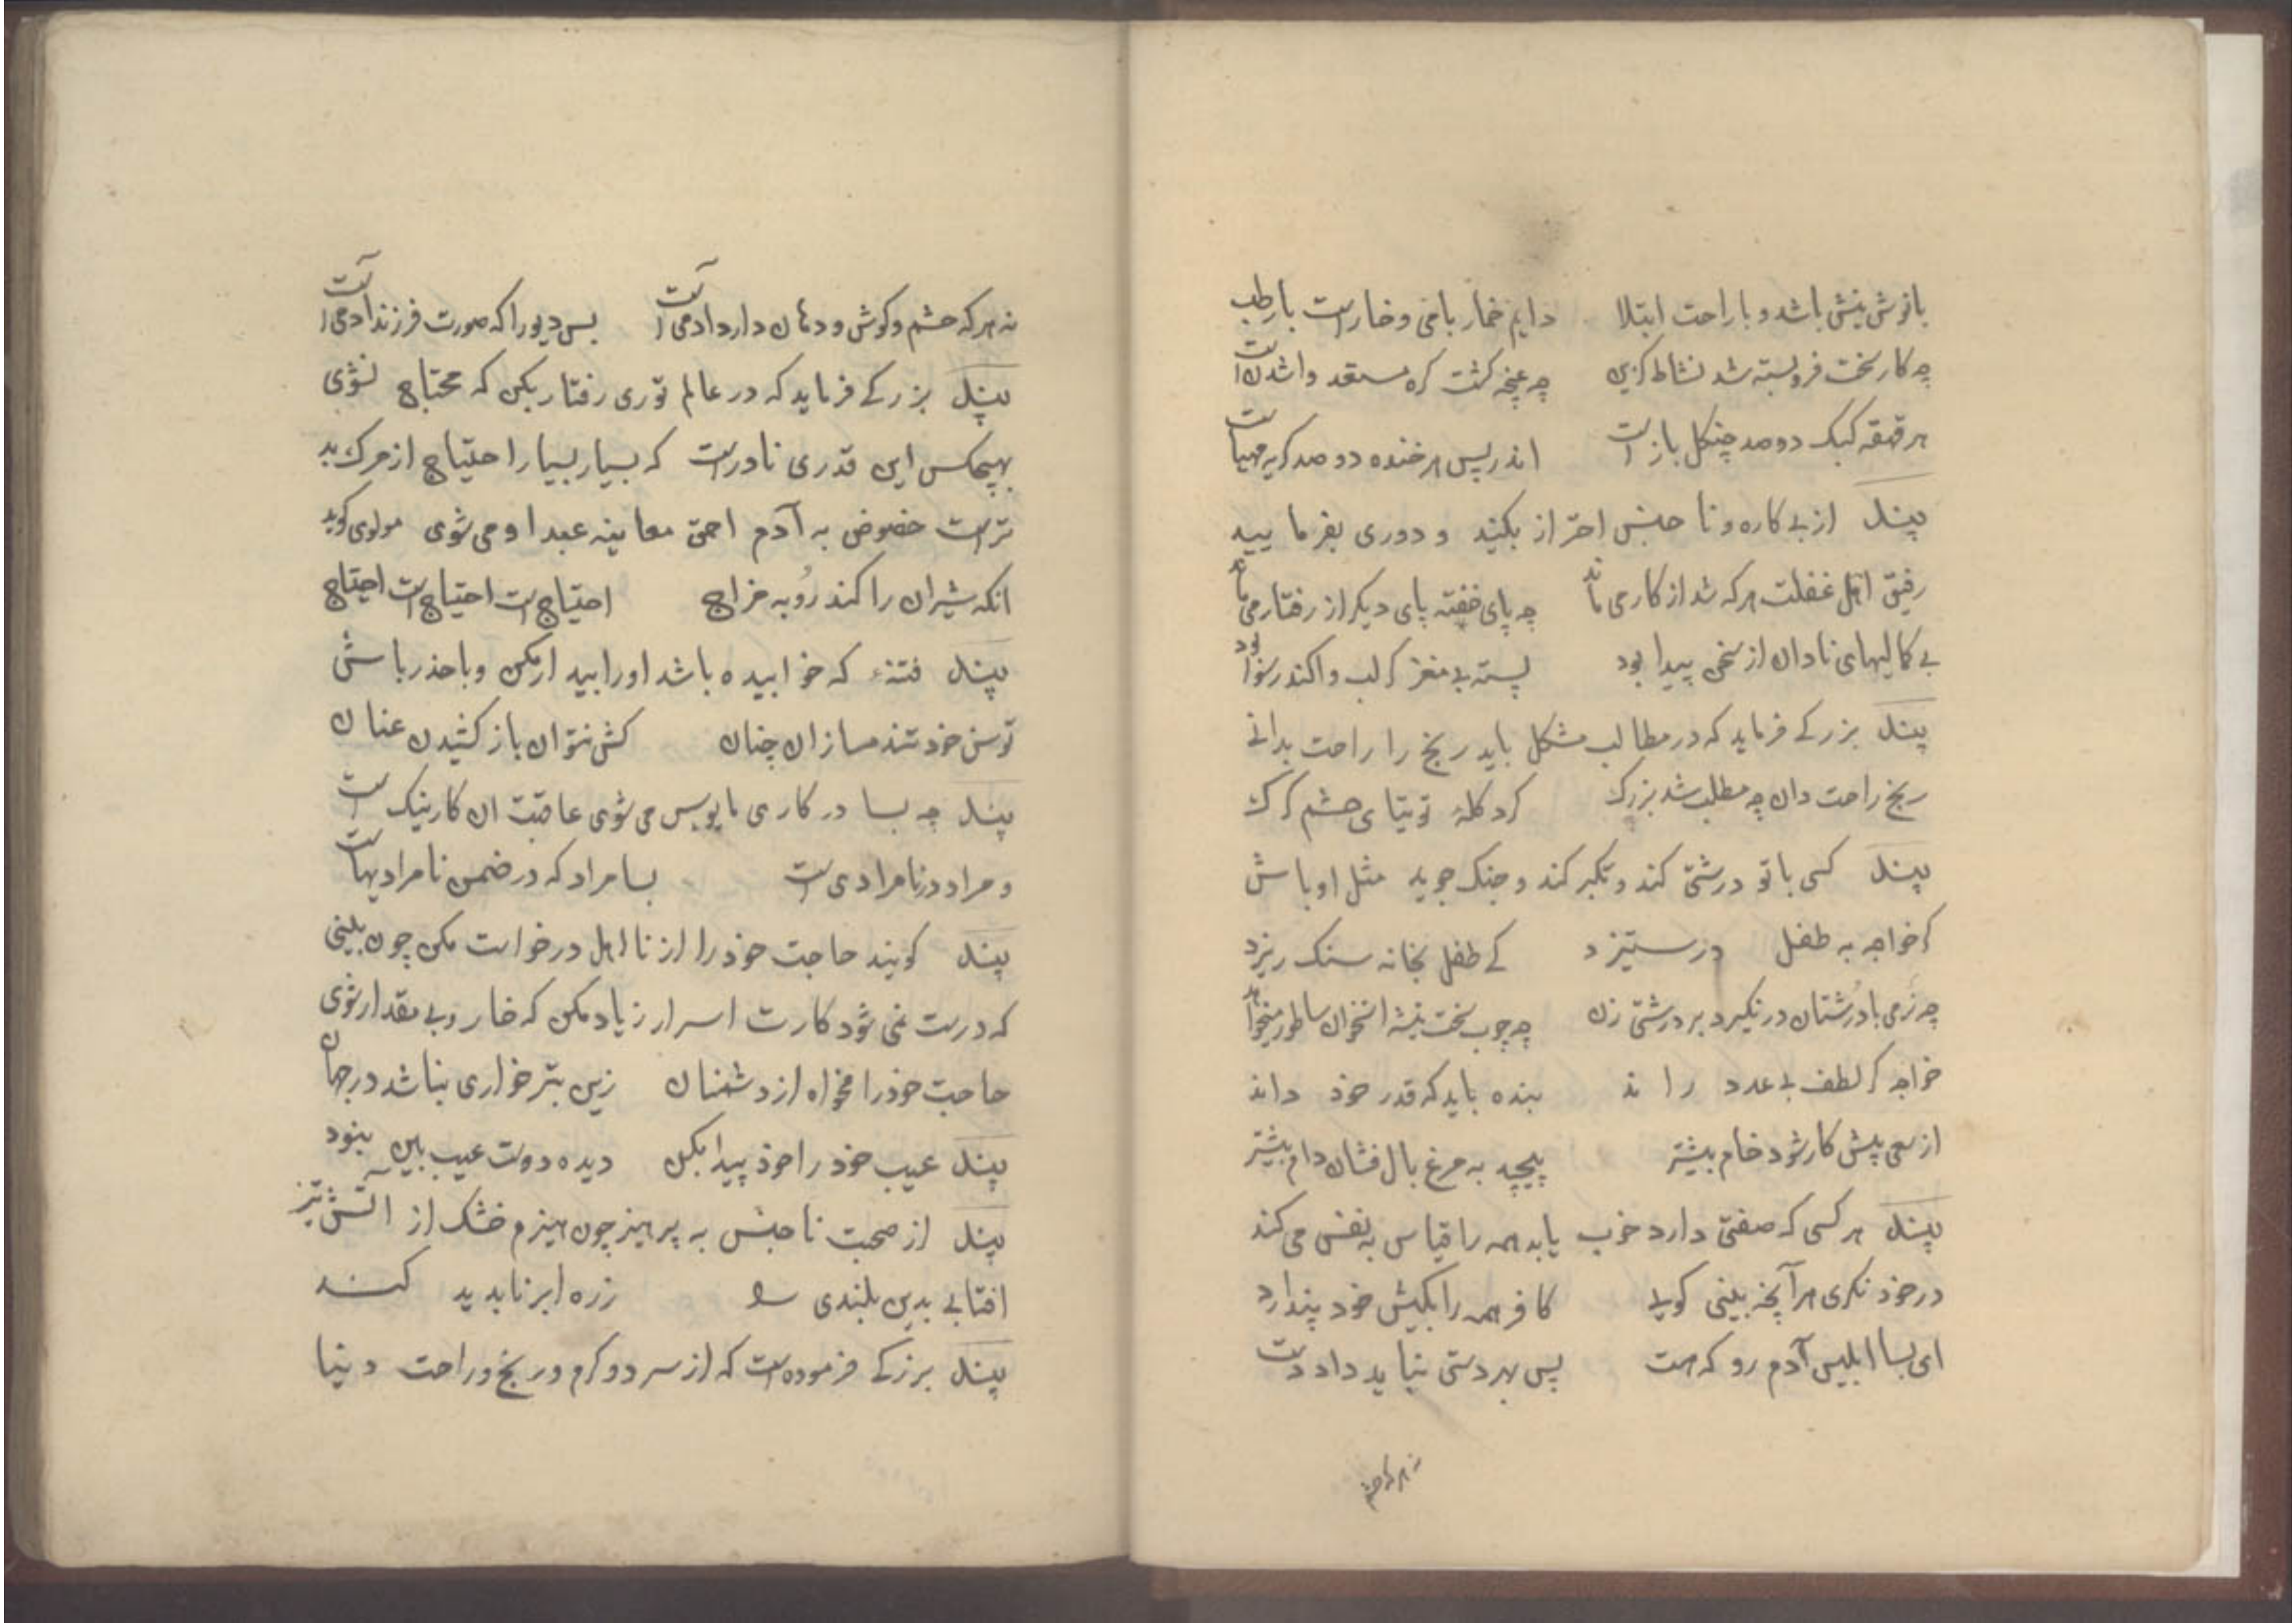 با نوش نیش باشد و با راحت ابتلا دایم خمار بامی و خار است با رطب
چه کار سخت فروبسته شد نشاط گزین چه غنچه گشت گره مستعد وا شدن است
هر قهقه کبک دوصد چنگل باز است اندر پس هر خنده دو صد گریه مهیاست
پند از بی کاره و نا جنس احتراز بکنید و دوری بفرمایید
رفیق اهل غفلت هر که شد از کار می ماند چه پای خفته پای دیگر از رفتار می ماند
بی کمالیهای نادان از سخن پیدا بود پسته بی مغز گر لب وا کند رسوا بود
پند بزرگے فرماید که در مطالب مشکل باید رنج را راحت بدانے
رنج راحت دان چه مطلب شد بزرگ گرد کلهٔ توتیای چشم گرگ
پند کسی با تو درشتی کند و تکبر کند و جنک جوید مثل اوباش
گر خواجه به طفل در ستیزد کے طفل بخانه سنک ریزد
چه نرمی با دُرشتان در نگیرد بر درشتی زن چه چوب سخت بیشه استخوان ساطور میخواهد
خواجه گر لطف بی عدد راند بنده باید که قدر خود داند
از سعی پیش کار شود خام بیشتر پیچد به مرغ بال فشان دام بیشتر
پند هر کسی که صفتی دارد خوب یا بد همه را قیاس به نفس می کند
در خود نکری هر آنچه بینی کویے کافر همه را بکیش خود پندارد
ای بسا ابلیس آدم رو که هست پس بهر دستی نباید داد دست
نه هر که چشم
نه هر که چشم و کوش و دهان دارد ادمی است بس دیو را که صورت فرزند ادمی است
پند بزرگے فرماید که در عالم توری رفتار بکن که محتاج نشوی
بهیچکس این قدری نادر است که بسیار بسیار احتیاج از مرک بد
تر است خصوص به آدم احمق معاینه عبد او می شوی مولوی کوید
انکه شیران را کند رُوبه مزاج احتیاج است احتیاج است احتیاج
پند فتنهٔ که خوابیده باشد او را بیدار مکن و با حذر باش
توسن خود تند مساز ان چنان کش نتوان باز کشیدن عنان
پند چه بسا در کاری مایوس می شوی عاقبت ان کار نیک است
و مراد در نامرادی است بسا مراد که در ضمن نامرادیهاست
پند کویند حاجت خود را از نا اهل درخواست مکن چون بینی
که درست نمی شود کارت اسرار زیاد مکن که خار و بی مقدار شوی
حاجت خود را مخواه از دشمنان زین بتر خواری نباشد در جهان
پند عیب خود را خود پیدا بکن دیده دوست عیب بین نبود
پند از صحبت نا جنس به پرهیز چون هیزم خشک از آتش تیز
افتابے بدین بلندی را زره ابر ناپدید کند
پند بزرگے فرموده است که از سرد و کرم و رنج و راحت دنیا